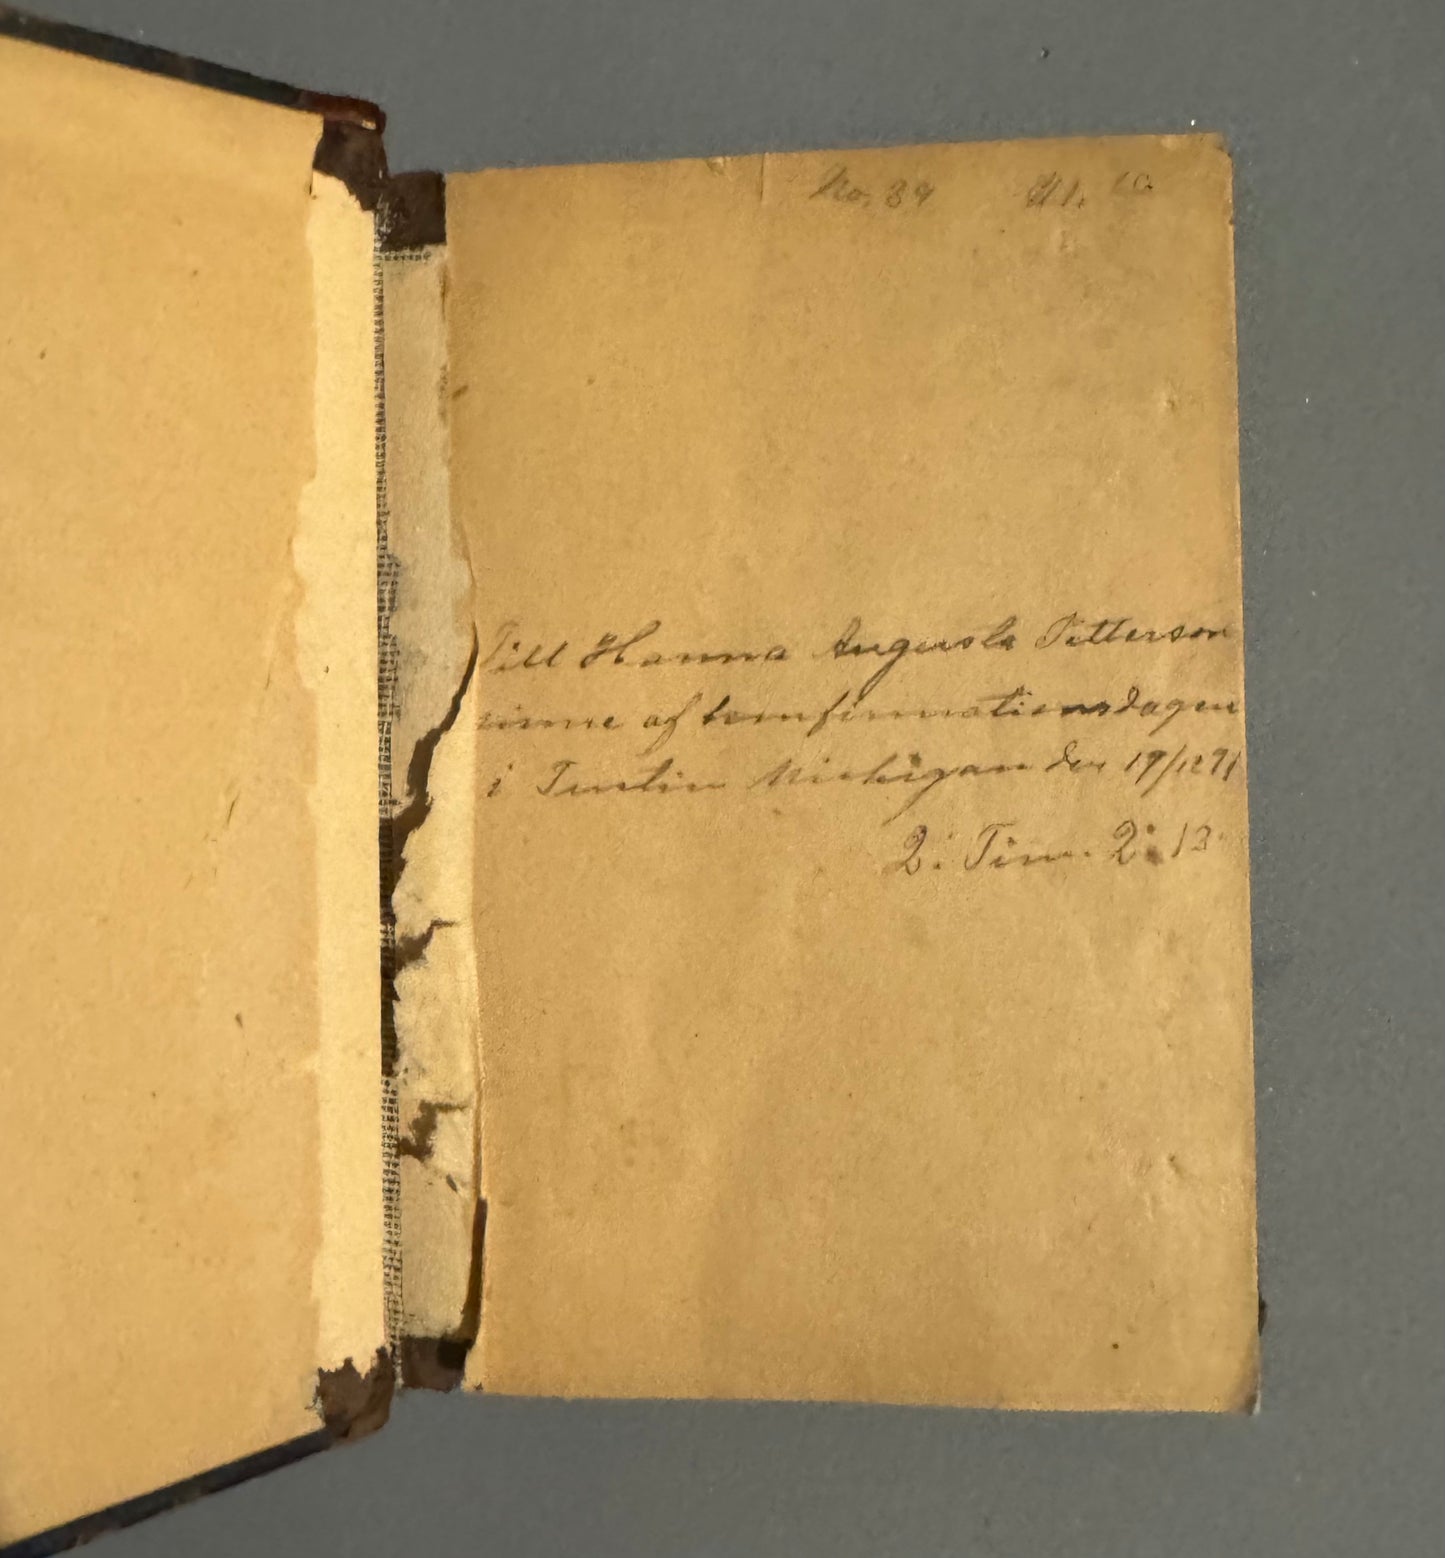 No. 39
Till Hanna Augusta Petterson
minne af konfirmationsdagen
i Tustin Michigan den 19/12 91
2: Tim. 2: 13